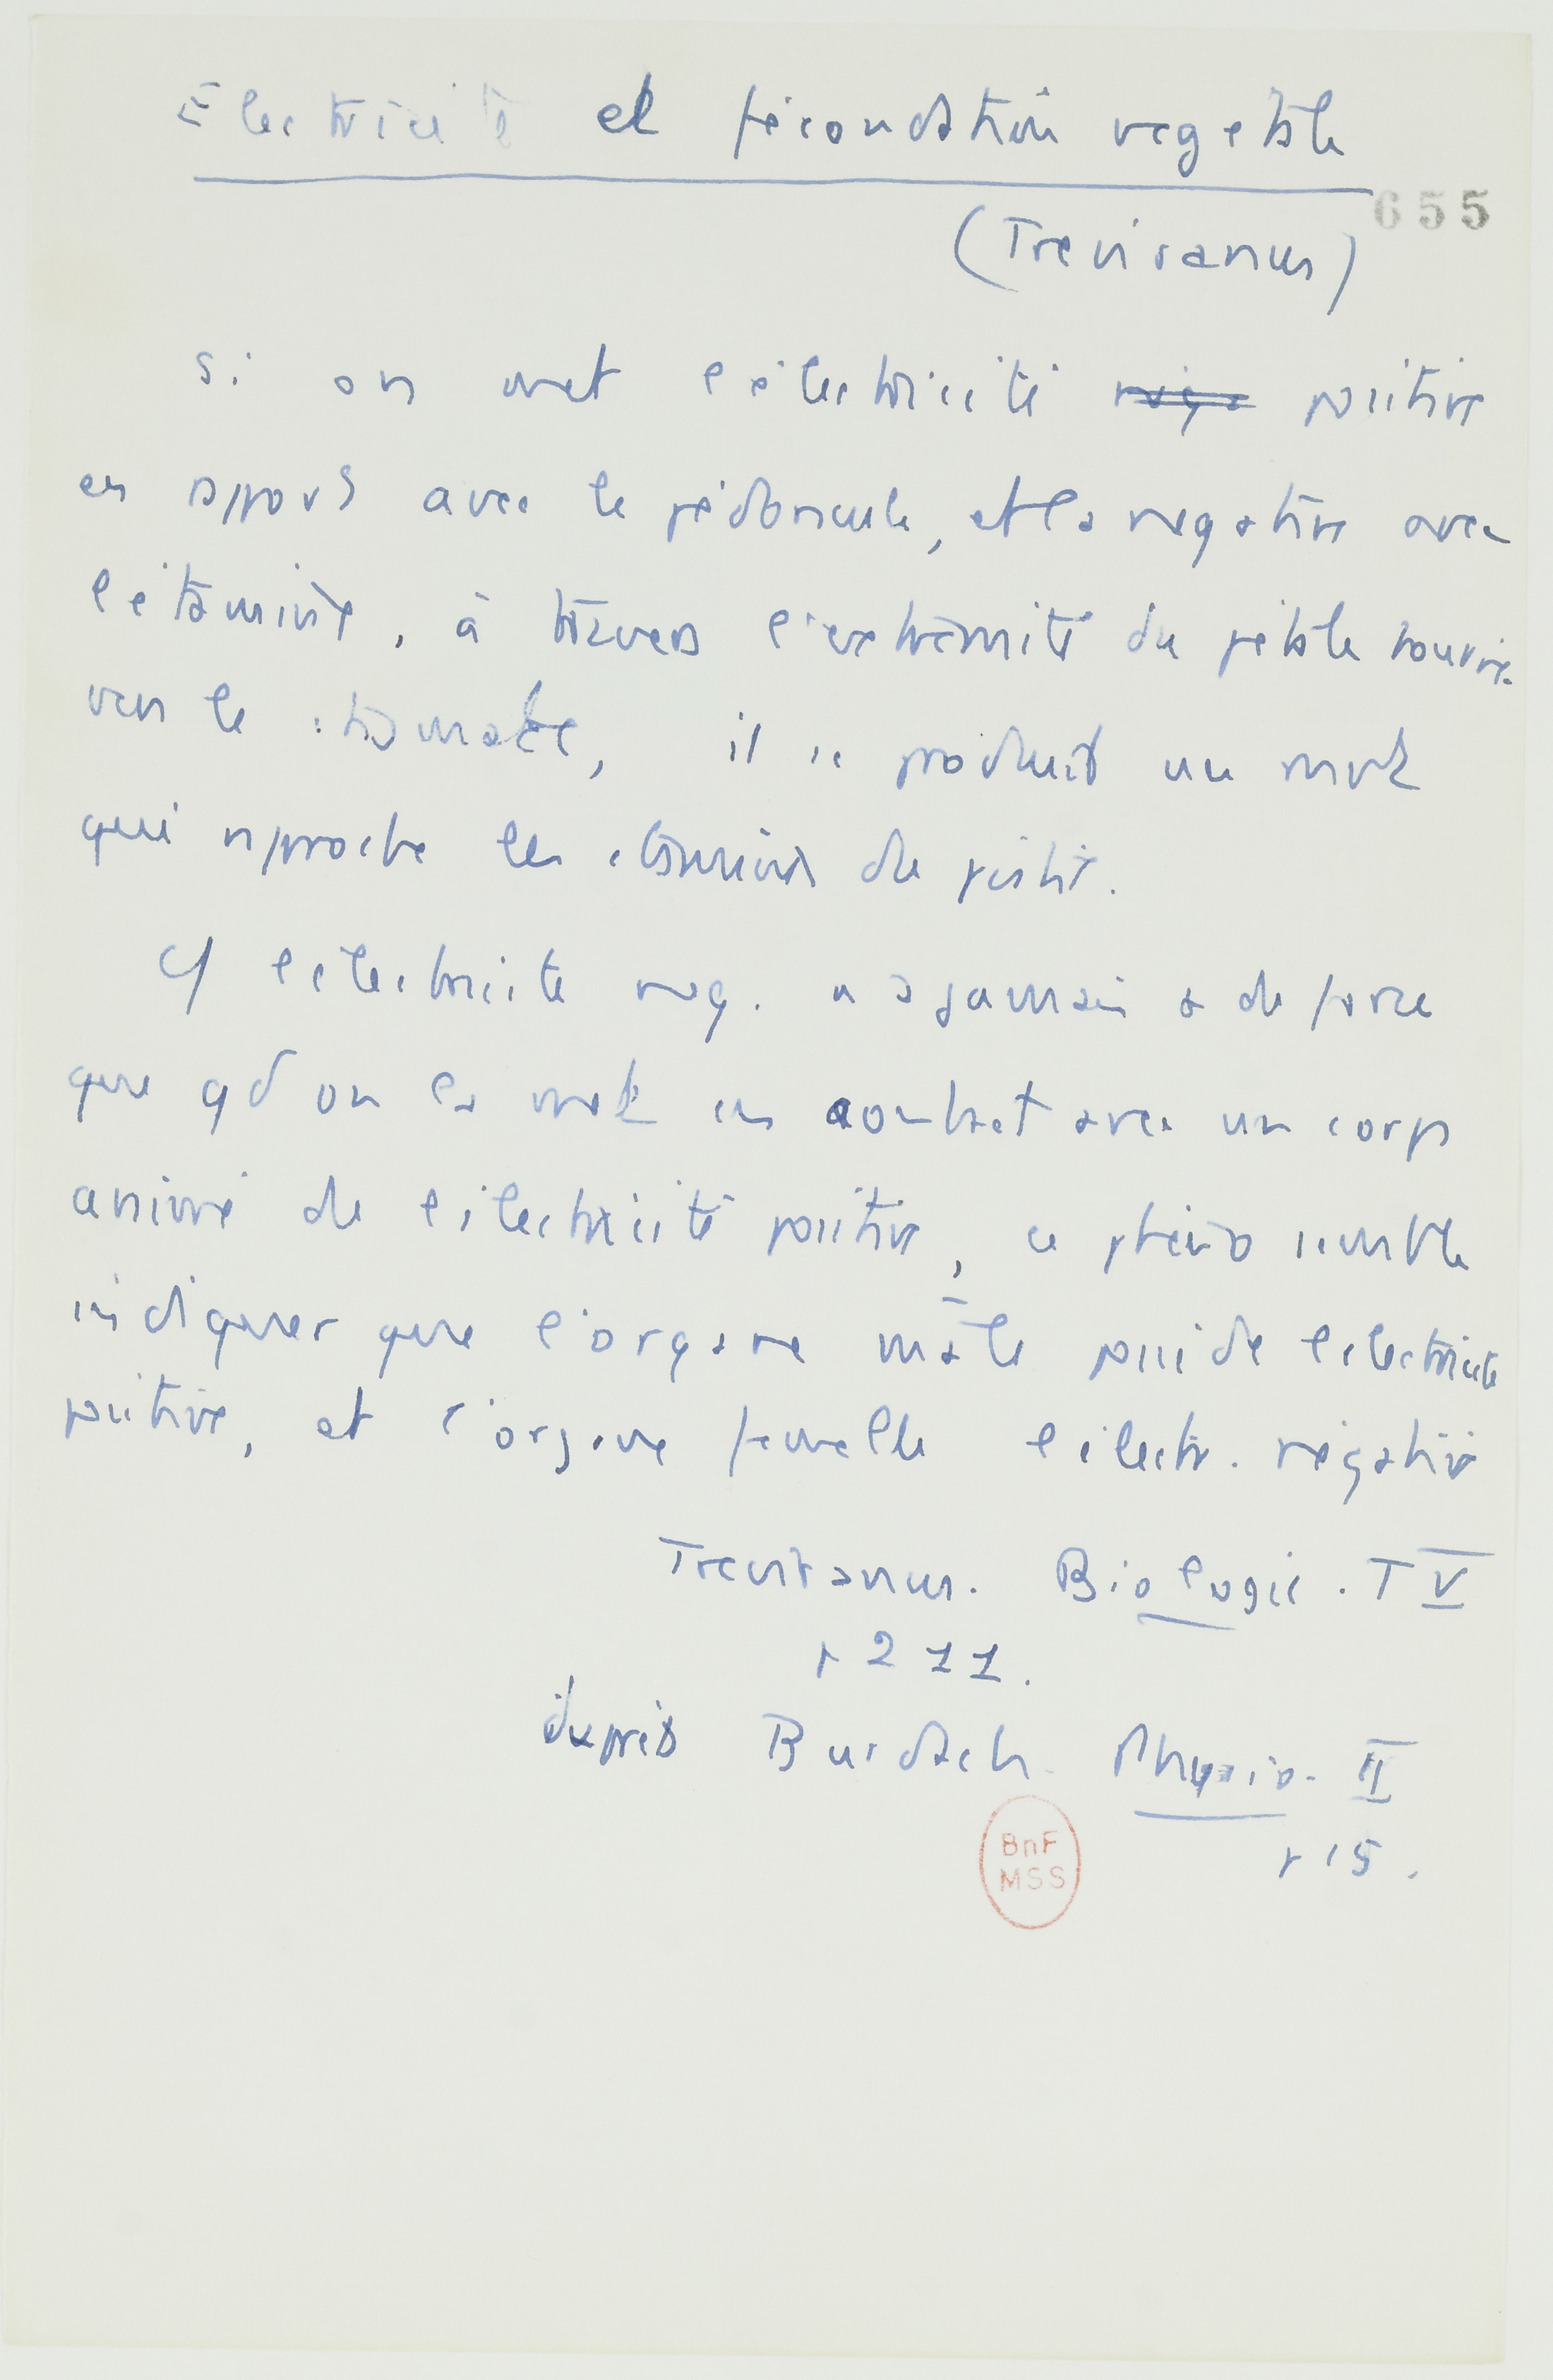 Electricité et fécondation végétale
655
(Treviranus)
Si on met l'électricité néga positive
en rapport avec le pédoncule, et la negative avec
l'étamine, à travers l'extrémité du pétale tourné
vers le stigmate, il se produit un mvt
qui rapproche les étamines du pistil.
Cf l'électricité neg. n'a jamais + de force
que qd on la met en contact avec un corps
animé de l'électricité positive, ce phéno semble
indiquer que l'organe mâle possède l'électricité
positive, et l'organe femelle l'électr. négative
Treviranus. Biologie. T V
p 211.
d'après Burdach. Physio. II
p 15.
BnF
MSS